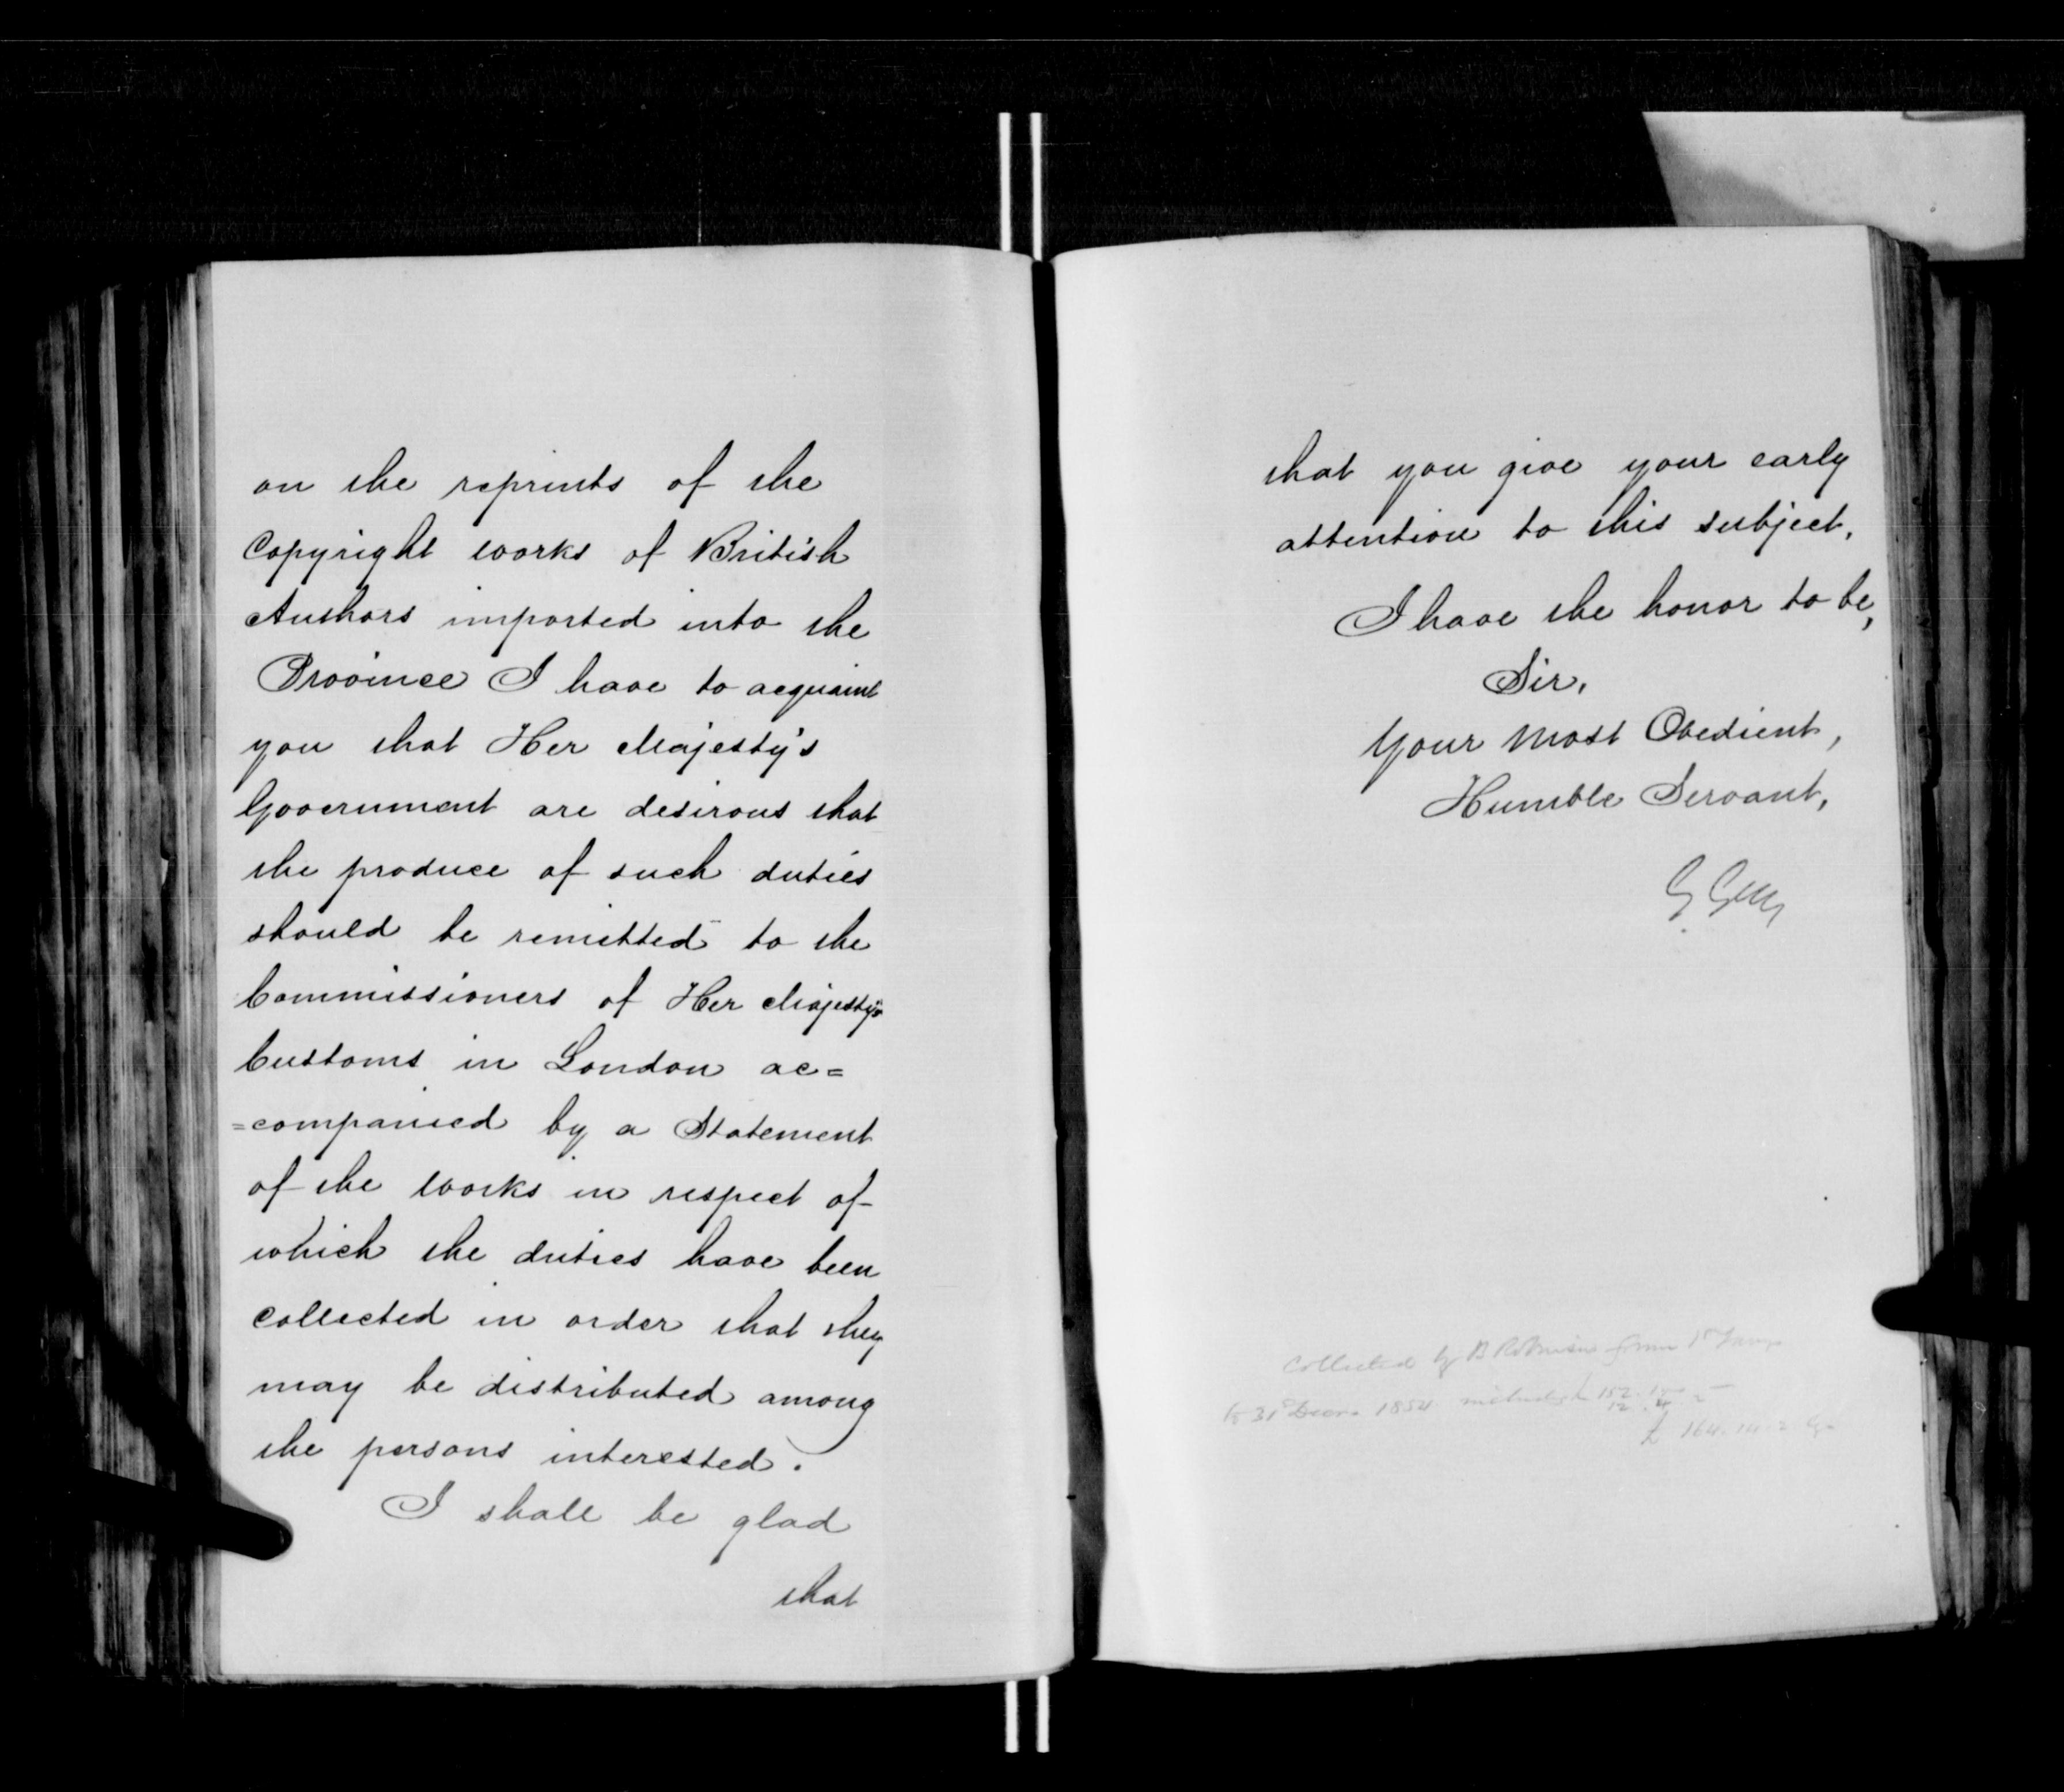 on the reprints of the
Copyright works of British
Authors imported into the
Province I have to acquaint
you that Her Majesty's
Government are desirous that
the produce of such duties
should be remitted to the
Commissioners of Her Majesty's
Customs in London ac=
=companied by a Statement
of the works in respect of
which the duties have been
collected in order that they
may be distributed among
the persons interested.
I shall be glad
that
that you give your early
attention to this subject.
I have the honor to be,
Sir,
Your Most Obedient,
Humble Servant,
G Grey
Collected by B Robinson from 1st
to 31st Decr. 1854
£ 164.14.2